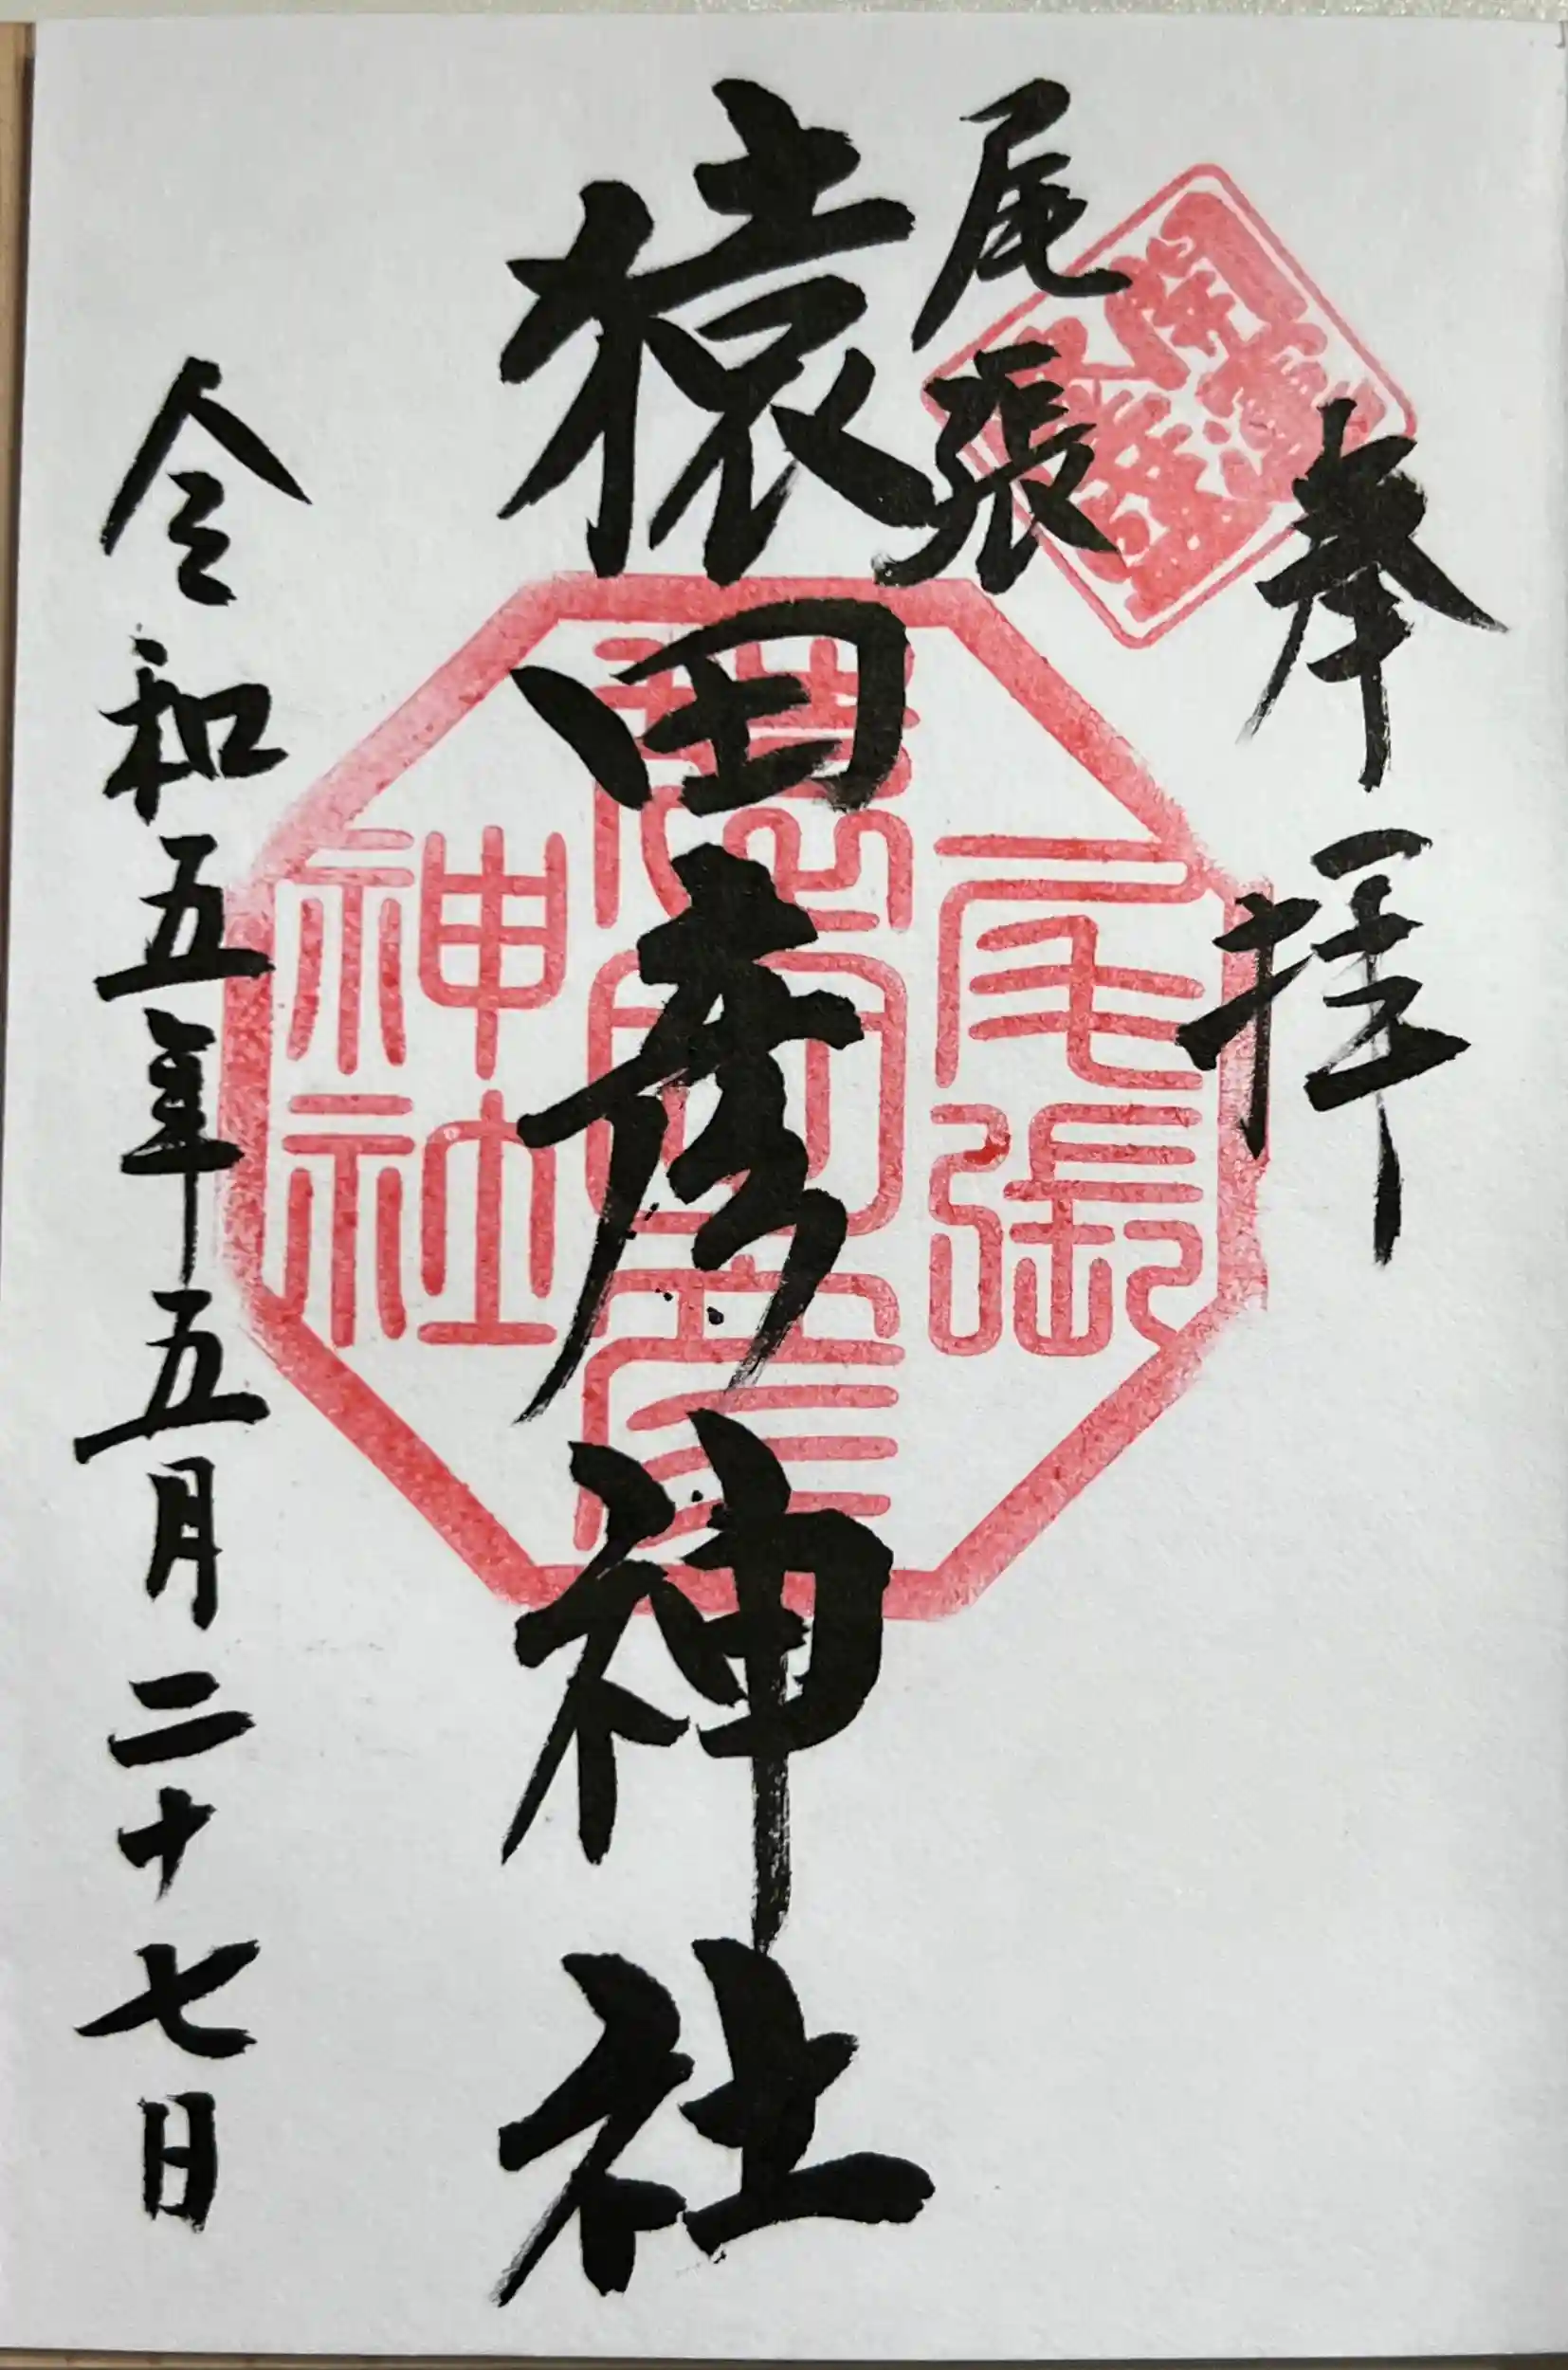 奉拝
尾張
猿田彦神社
令和五年五月二十七日
尾張
猿田彦
神社